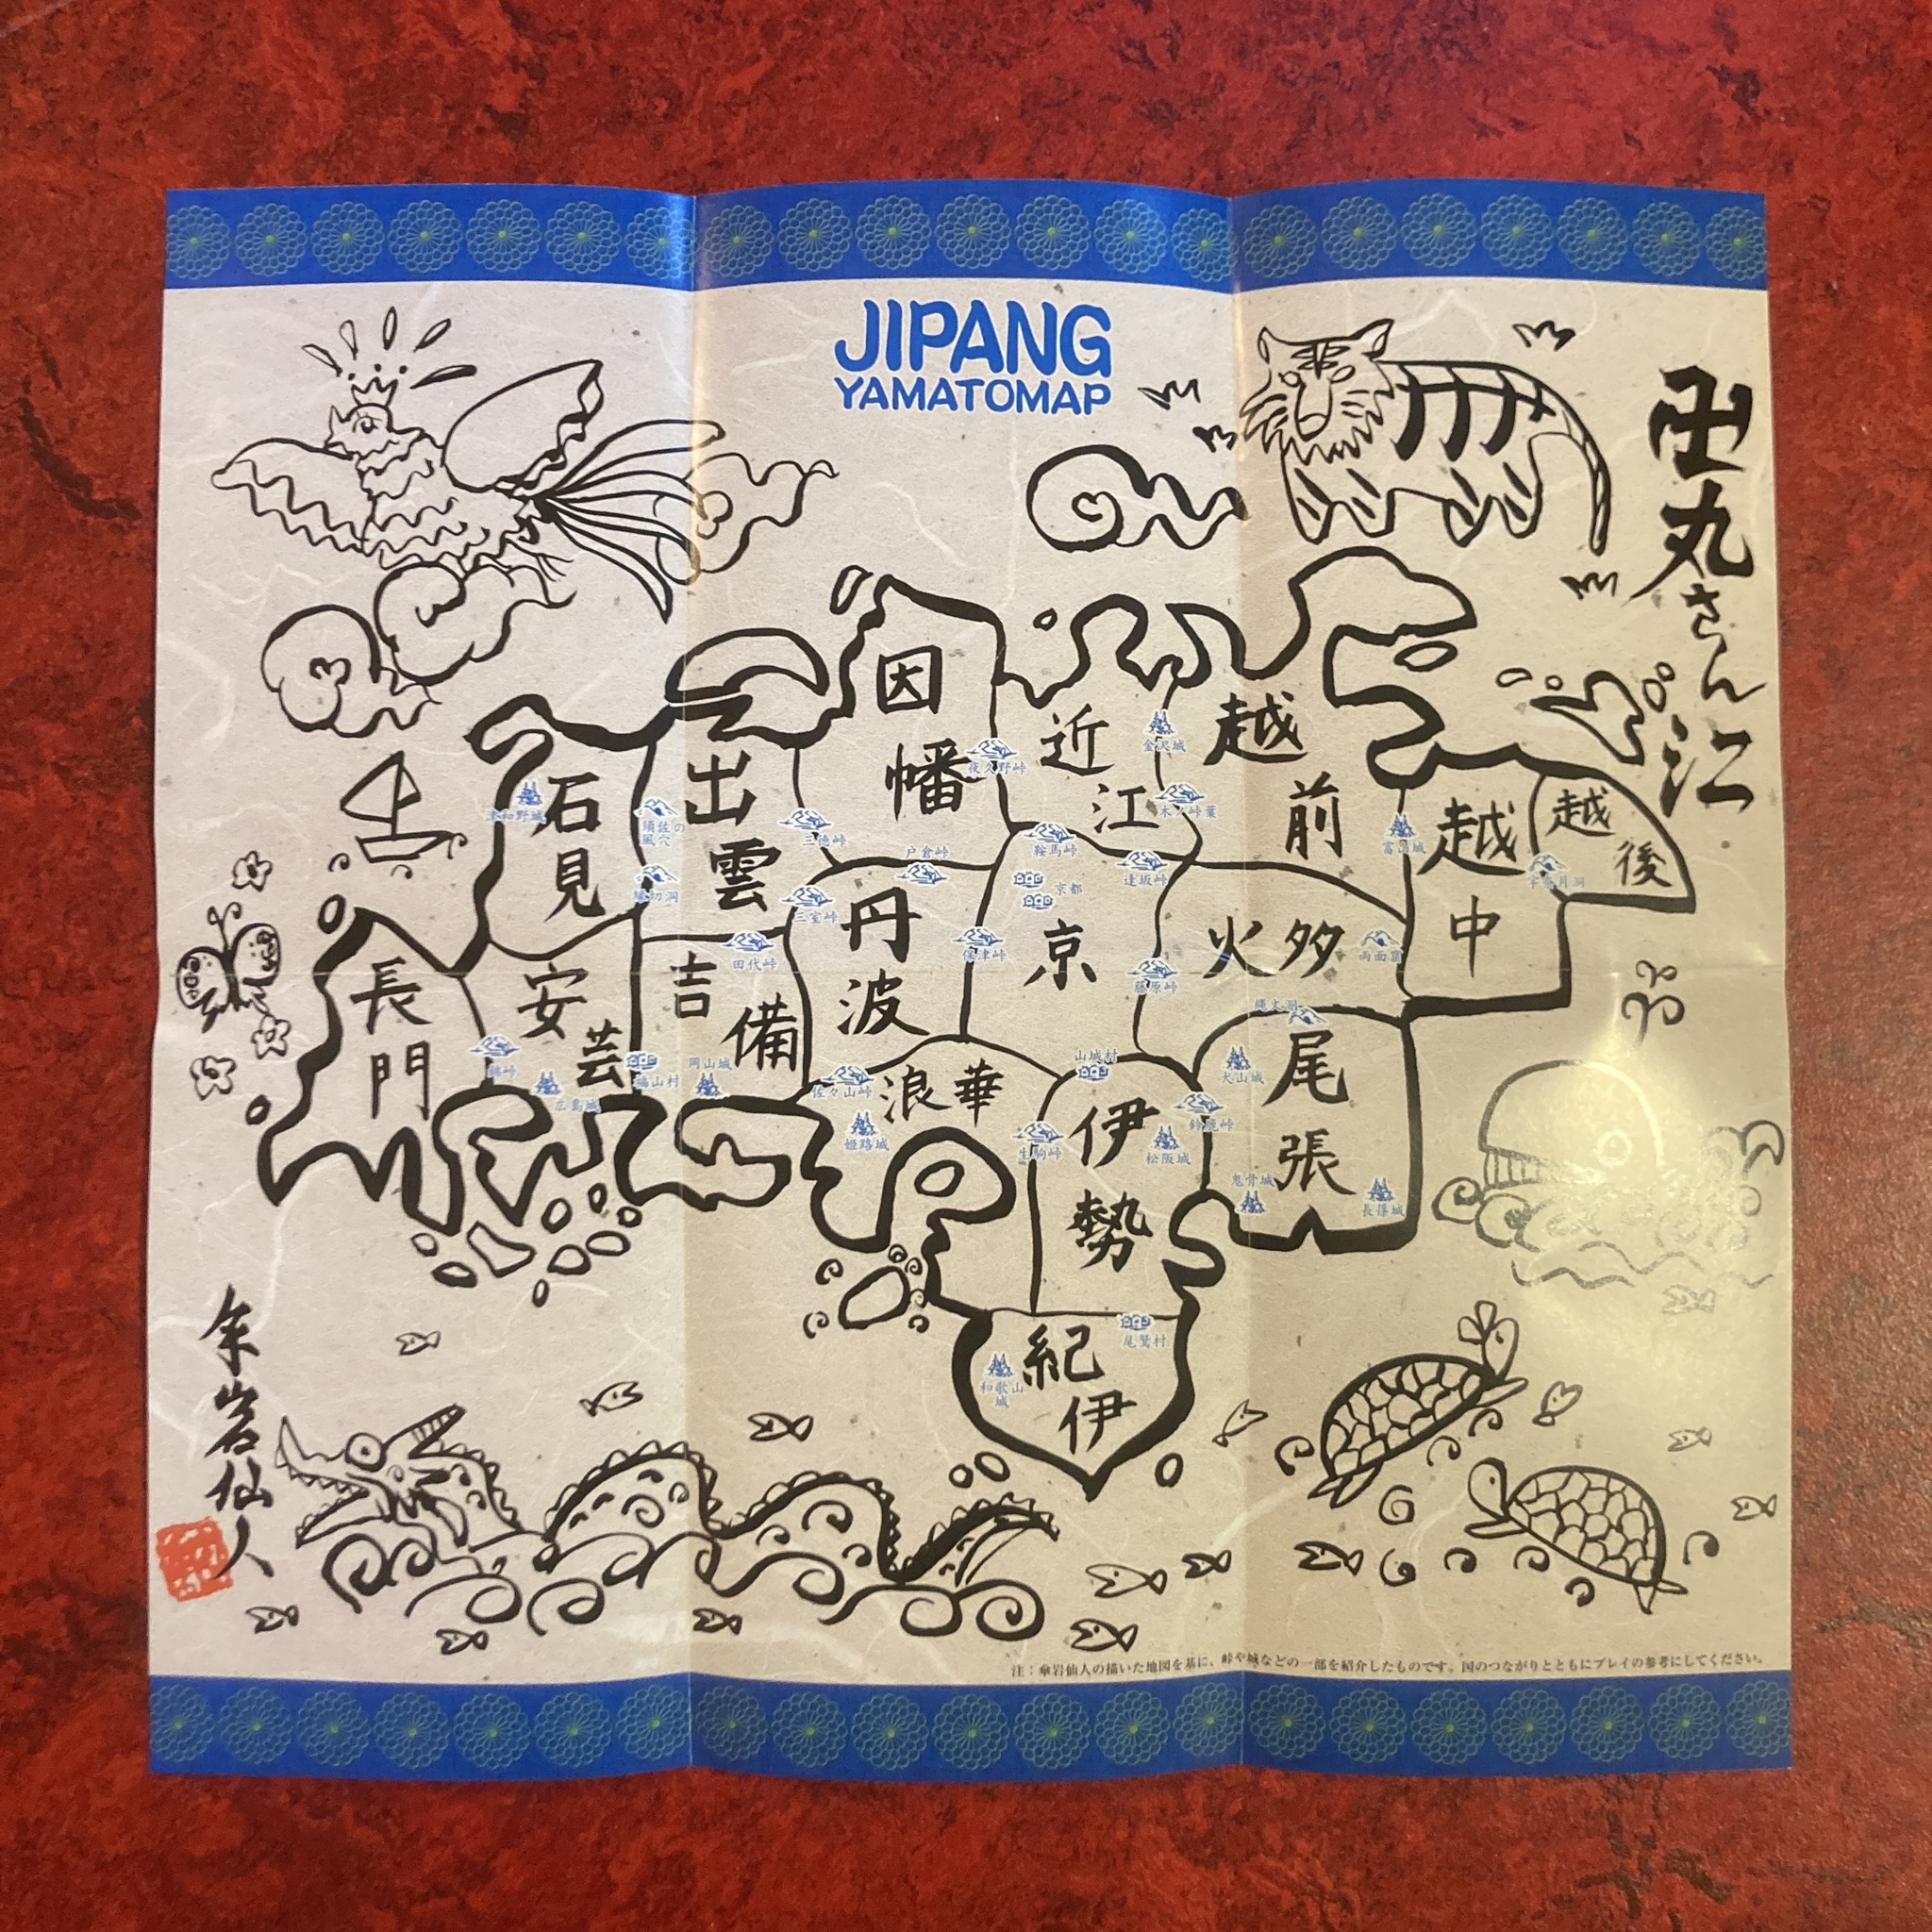 JIPANG
YAMATOMAP
卍丸さん江
因幡
近江
越前
越中
越後
石見
出雲
丹波
京
火多
長門
安芸
吉備
浪華
伊勢
尾張
紀伊
金沢城
夜久野峠
津和野城
須佐の
風穴
三徳峠
戸倉峠
鞍馬峠
逢坂峠
富山城
京都
三室峠
田代峠
保津峠
藤原峠
両面窟
縄文洞
福山村
岡山城
広島城
佐々山峠
姫路城
山城村
生駒峠
松阪城
鈴鹿峠
犬山城
鬼骨城
長篠城
尾鷲村
和歌山
城
傘岩仙人
注：傘岩仙人の描いた地図を基に、峠や城などの一部を紹介したものです。国のつながりとともにプレイの参考にしてください。